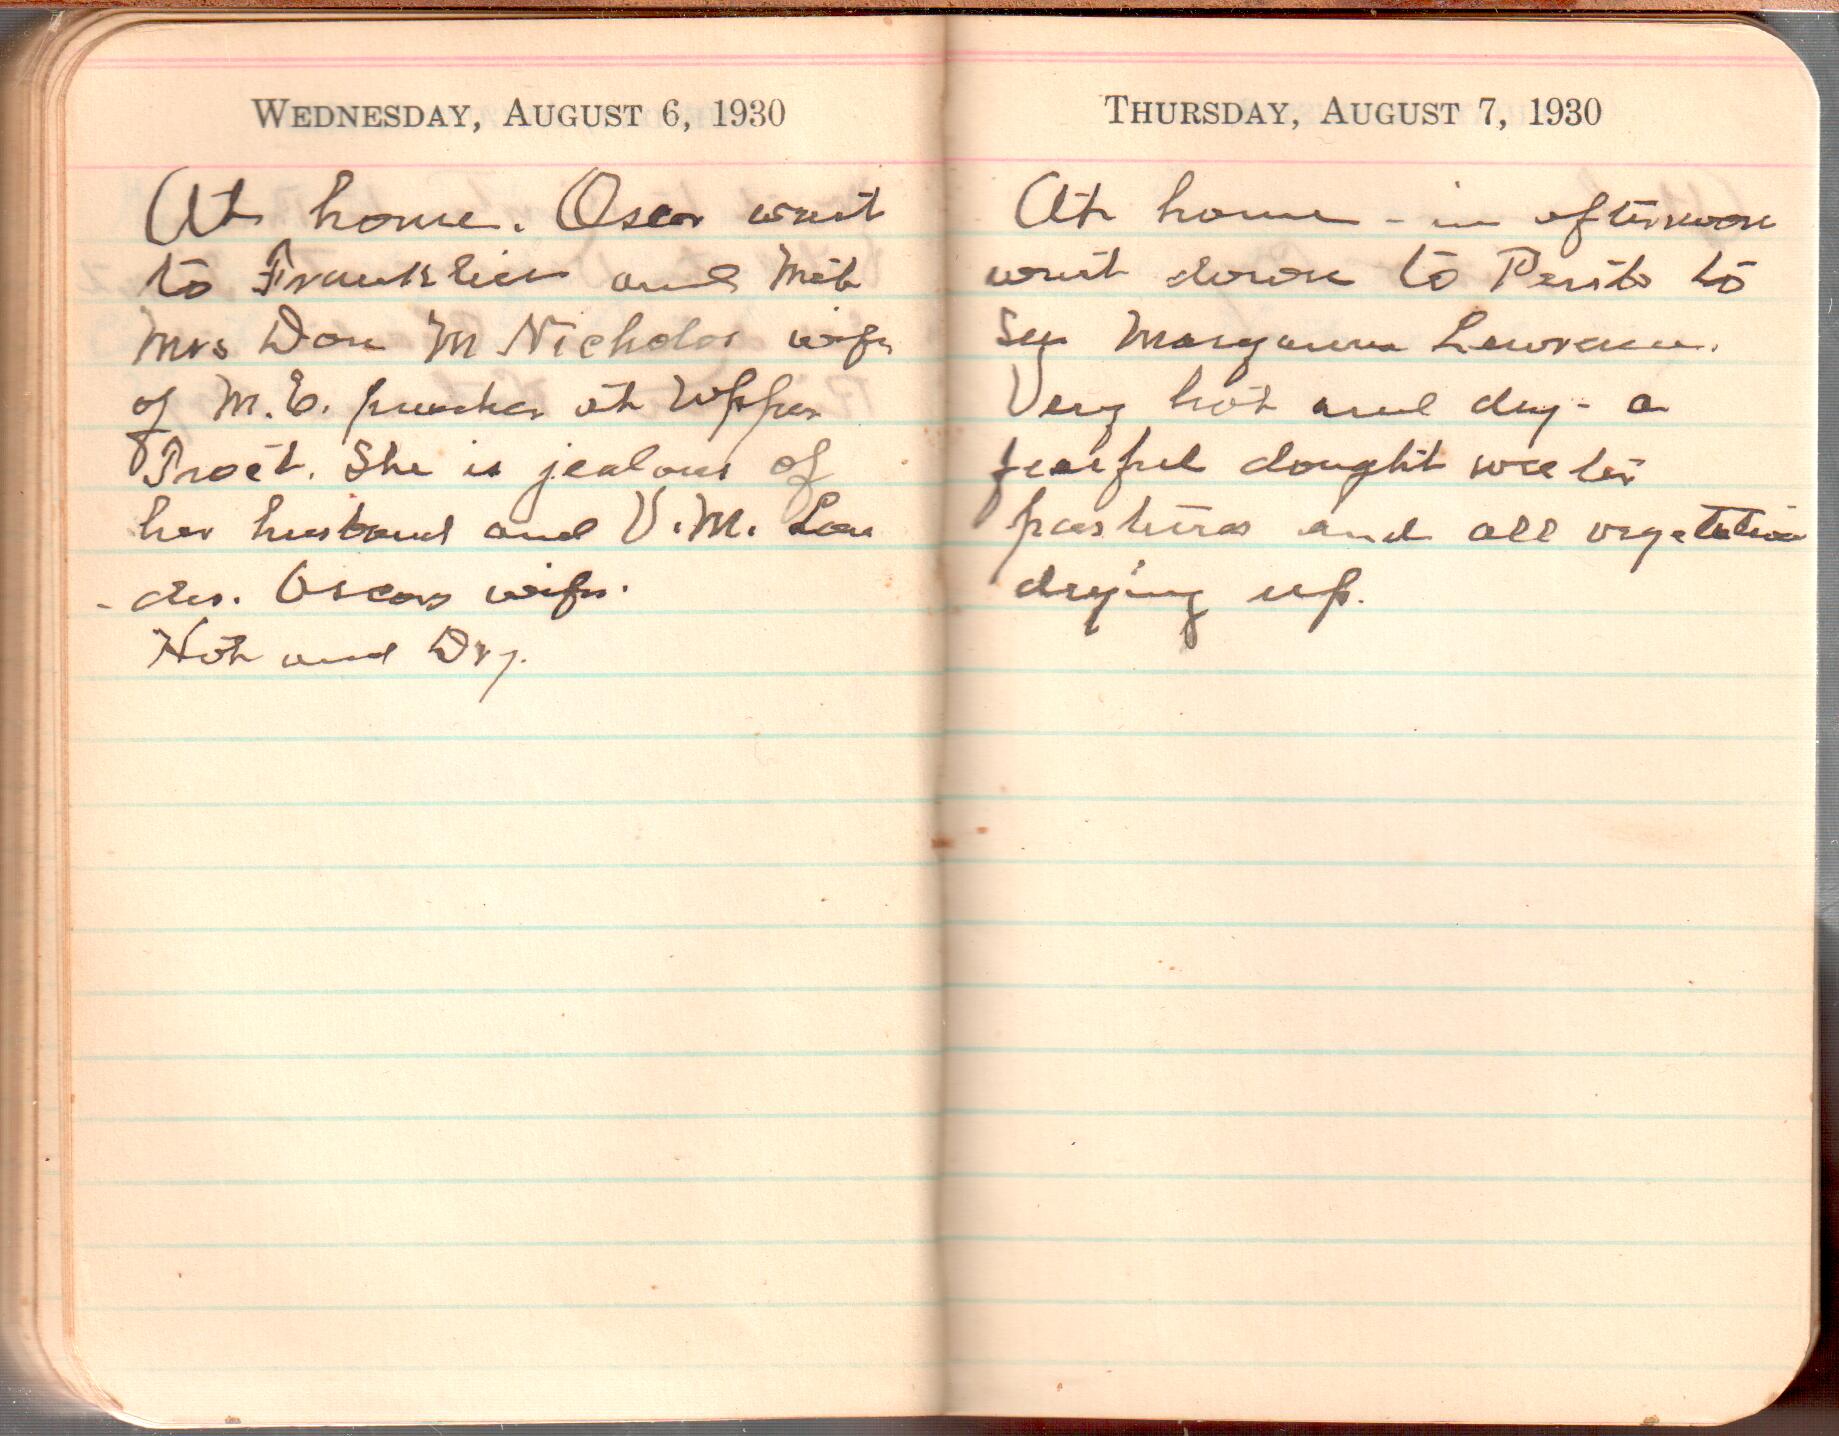 WEDNESDAY, AUGUST 6, 1930
At home. Oscar went
to Franklin and Met
Mrs Don M Nicholas wife
of M.E. preacher at Upper
Tract. She is jealous of
her husband and V.M. Lan
- des. Oscars wife.
Hot and Dry.
THURSDAY, AUGUST 7, 1930
At home - in afternoon
went down to to
See Maryanna Lawrence.
Very hot and dry - a
fearful dought water
pastures and all vegetation
drying up.